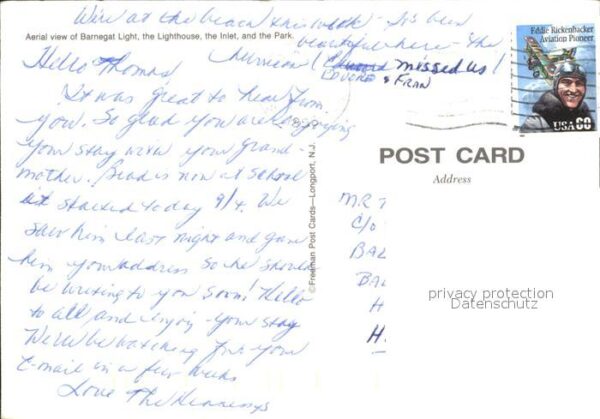 We're at the beach this week - It's been
Aerial view of Barnegat Light, the Lighthouse, the Inlet, and the Park.
beautiful here - the
hurricane missed us!
LENORE & FRAN
Hello Thomas
It was great to hear from
you. So glad you are enjoying
your stay with your grand-
mother. Brad is now at school
it started today 9/4. We
saw him last night and gave
him your address so he should
be writing to you soon! Hello
to all, and enjoy your stay
We'll be watching for your
E-mail in a few weeks
Love The Hennesys
©Freeman Post Cards—Longport, N.J.
Eddie Rickenbacker
Aviation Pioneer
USA 60
POST CARD
Address
MR T
C/O
BAL
BAL
H
H
privacy protection
Datenschutz